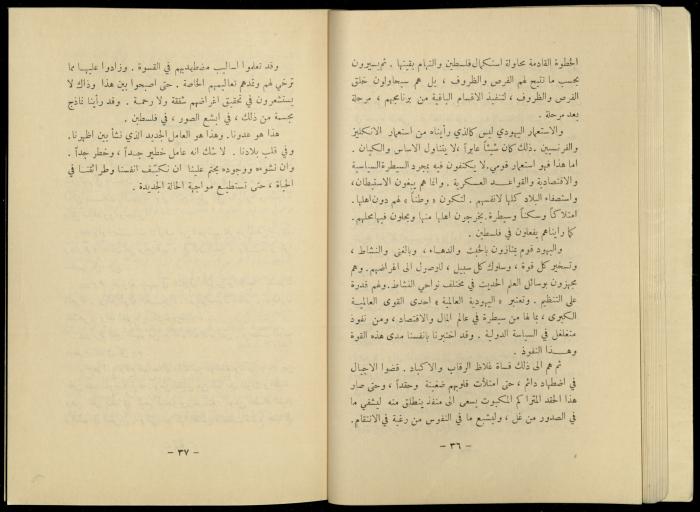 الخطوة القادمة محاولة استكمال فلسطين والتهام بقيتها . ثم يسيرون
بحسب ما تتيح لهم الفرص والظروف ، بل هم سيحاولون خلق
الفرص والظروف ، لتنفيذ الاقسام الباقية من برنامجهم ، مرحلة
بعد مرحلة .
والاستعمار اليهودي ليس كالذي رأيناه من استعمار الانكليز
والفرنسيين . ذلك كان شيئاً عابراً ، لا يتناول الاساس والكيان .
اما هذا فهو استعمار قومي . لا يكتفون فيه بمجرد السيطرة السياسية
والاقتصادية والقواعد العسكرية . وانما هم يبغون الاستيطان ،
واستصفاء البلاد كلها لانفسهم . لتكون « وطناً » لهم دون اهلها .
امتلاكاً وسكناً وسيطرة . يخرجون اهلها منها ويحلون فيها محلهم .
كما رأيناهم يفعلون في فلسطين .
واليهود قوم يمتازون بالخبث والدهاء ، وبالغنى والنشاط ،
وتسخير كل قوة ، وسلوك كل سبيل ، للوصول الى اغراضهم . وهم
مجهزون بوسائل العلم الحديث في مختلف نواحي النشاط . ولهم قدرة
على التنظيم . وتعتبر « اليهودية العالمية » احدى القوى العالمية
الكبرى ، بما لها من سيطرة في عالم المال والاقتصاد ، ومن نفوذ
متغلغل في السياسة الدولية . وقد اختبرنا بانفسنا مدى هذه القوة
وهذا النفوذ .
ثم هم الى ذلك قساة غلاظ الرقاب والاكباد . قضوا الاجيال
في اضطهاد دائم ، حتى امتلأت قلوبهم ضغينة وحقداً ، وحتى صار
هذا الحقد المتراكم المكبوت يسعى الى منفذ ينطلق منه ليشفي ما
في الصدور من غل ، وليشبع ما في النفوس من رغبة في الانتقام .
- ٣٦ -
وقد تعلموا اساليب مضطهديهم في القسوة . وزادوا عليها مما
توحي لهم وتمدهم تعاليمهم الخاصة . حتى اصبحوا بين هذا وذاك لا
يستشعرون في تحقيق اغراضهم شفقة ولا رحمة . وقد رأينا نماذج
مجسمة من ذلك ، في ابشع الصور ، في فلسطين .
هذا هو عدونا . وهذا هو العامل الجديد الذي نشأ بين اظهرنا .
وفي قلب بلادنا . لا شك انه عامل خطير جداً ، وخطر جداً .
وان نشوءه ووجوده يحتم علينا ان نكيّف انفسنا وطرائقنا في
الحياة ، حتى نستطيع مواجهة الحالة الجديدة .
- ٣٧ -